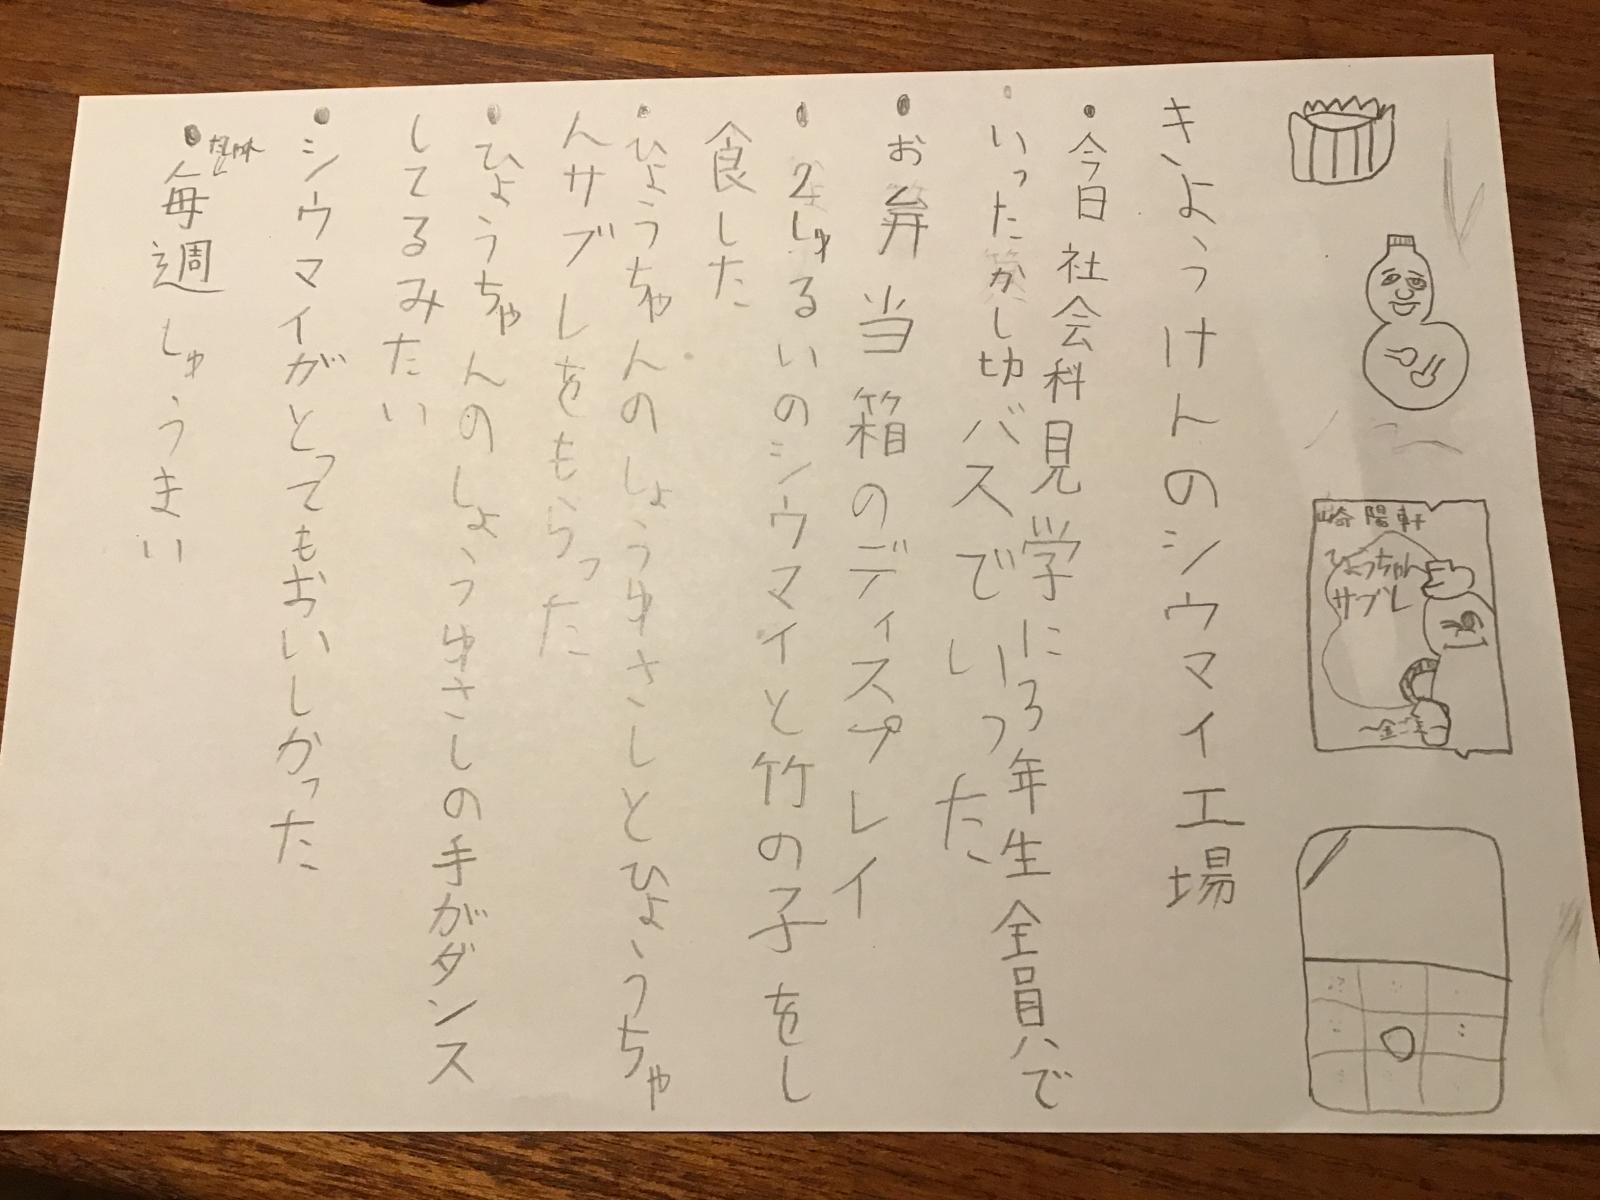 きようけんのシウマイ工場
・今日社会科見学に3年生全員で
いったかし切バスでいった
・お弁当箱のディスプレイ
・2しゅるいのシウマイと竹の子をし
食した
・ひょうちゃんのしょうゆさしとひょうちゃ
んサブレをもらった
・ひょうちゃんのしょうゆさしの手がダンス
してるみたい
・シウマイがとってもおいしかった
・毎週しゅうまい
崎陽軒
ひょうちゃん
サブレ